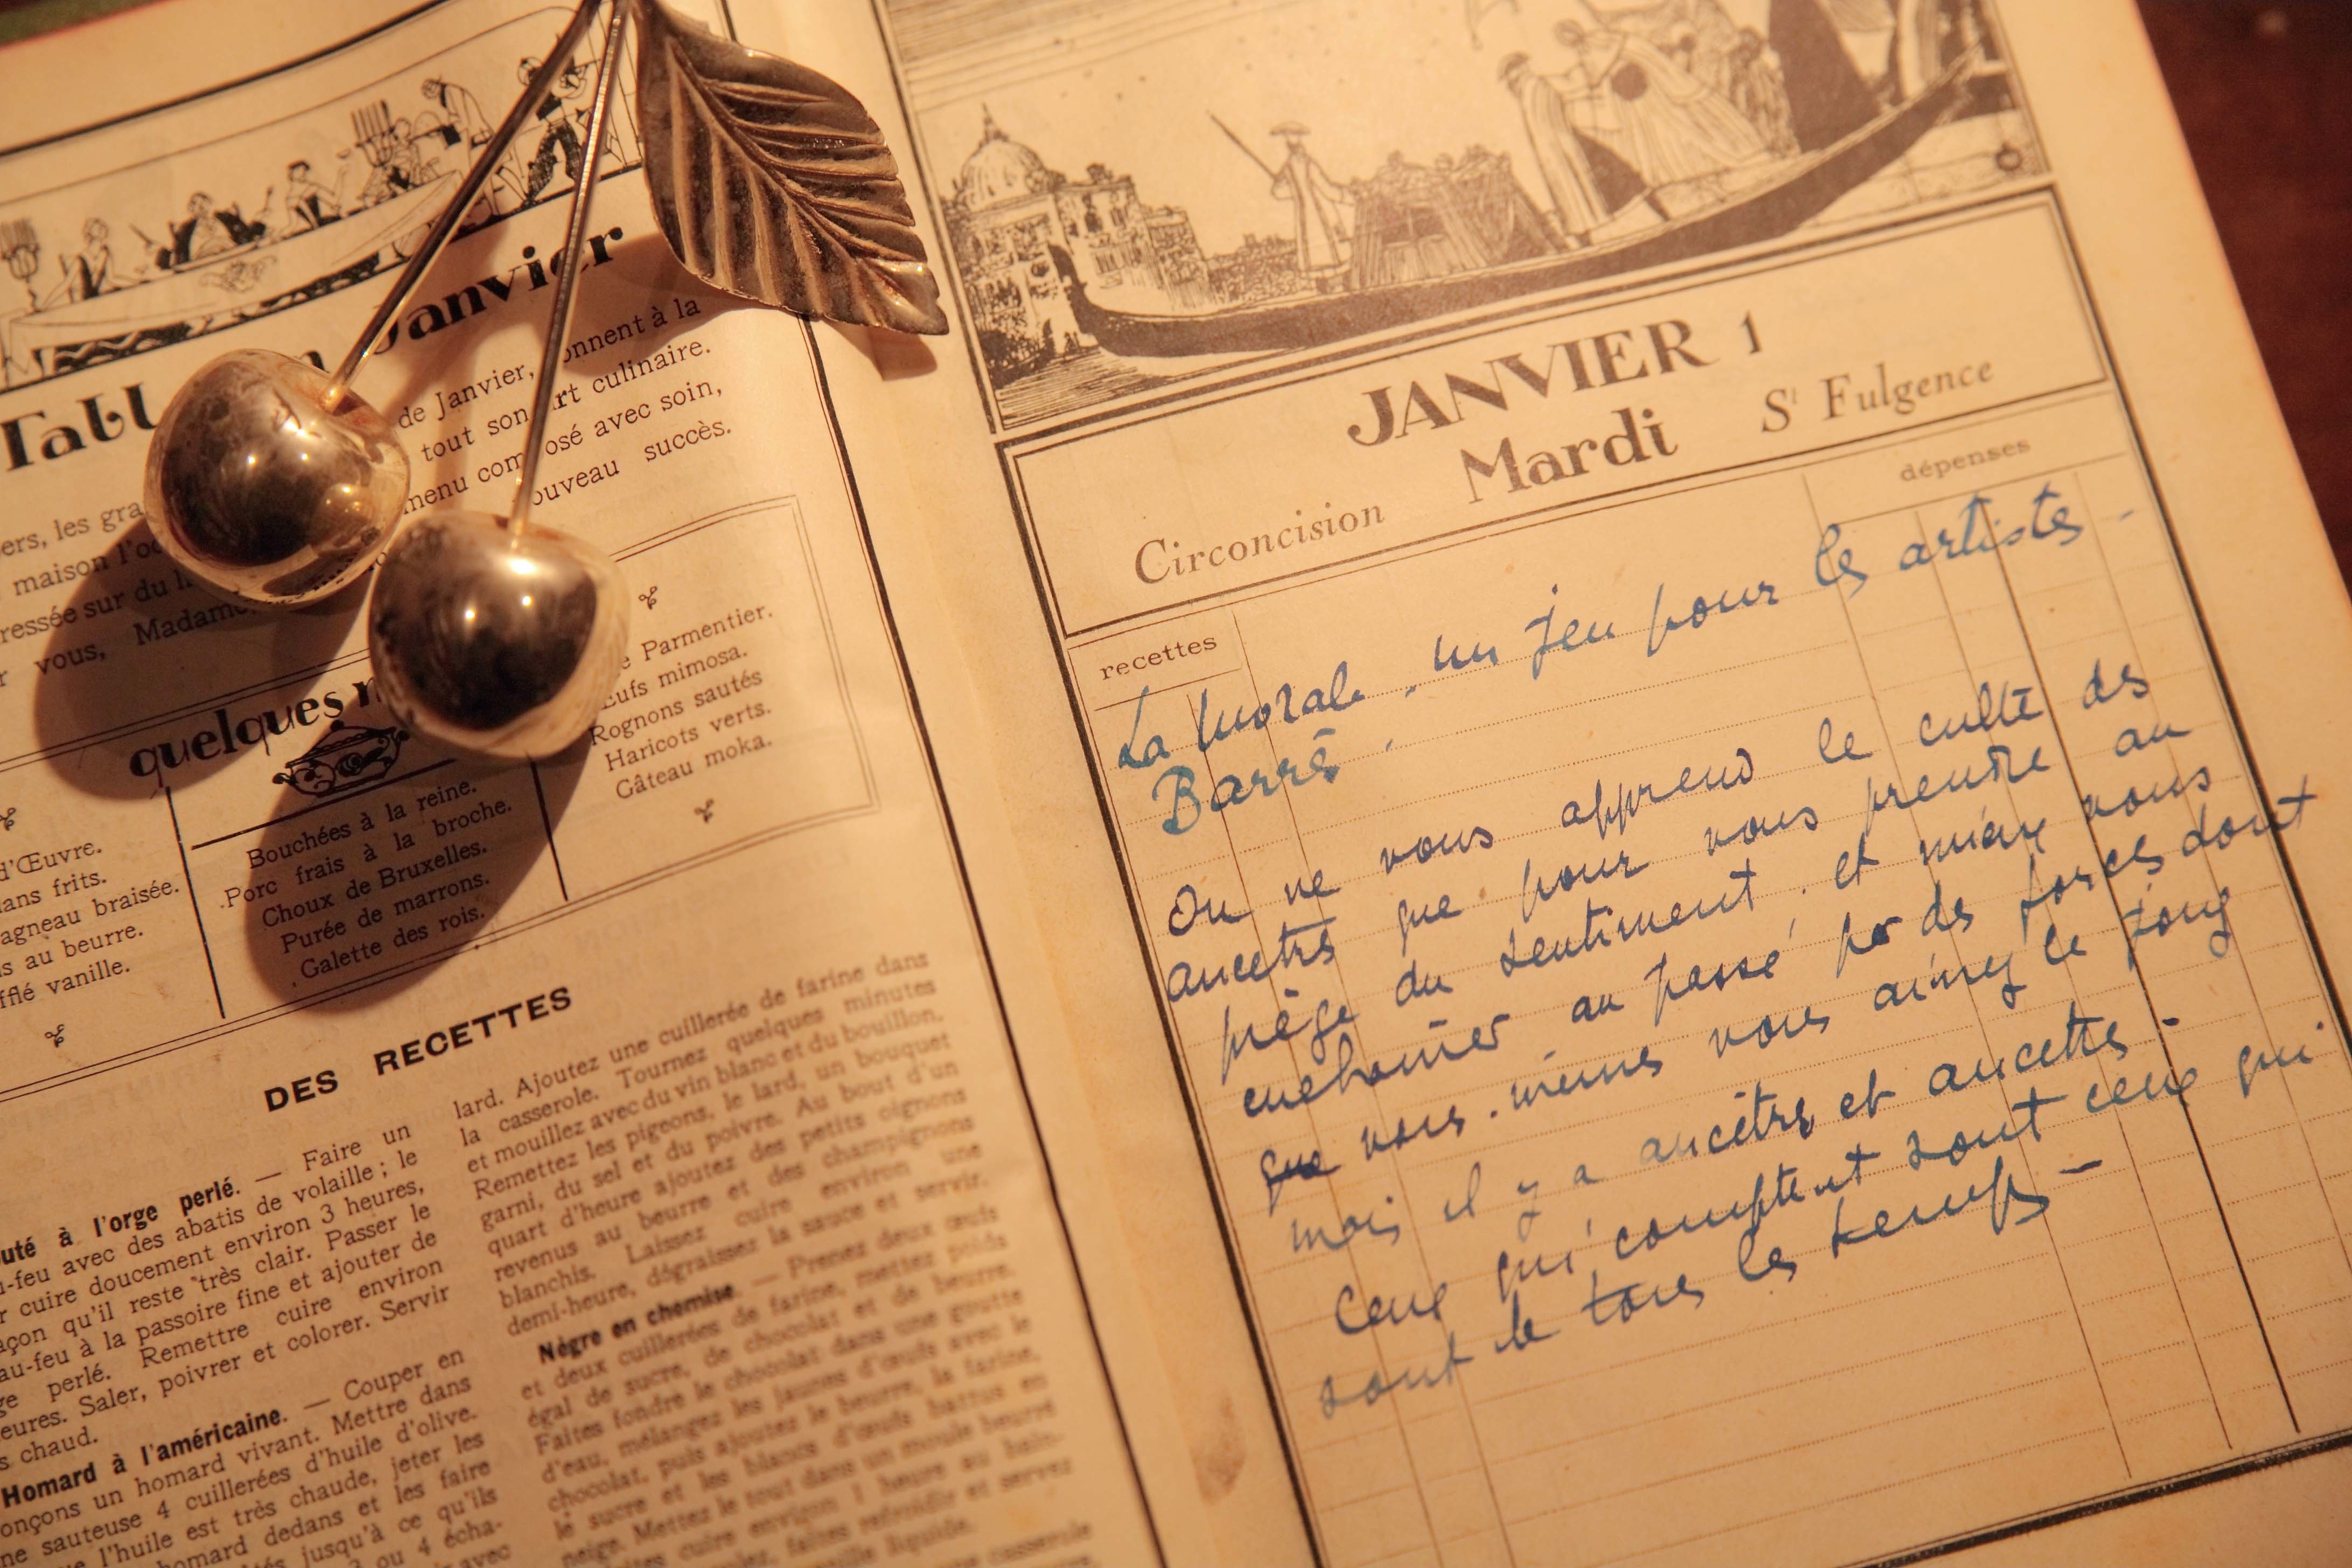 Janvier
de Janvier, onnent à la
tout son art culinaire.
menu composé avec soin,
ouveau succès.
ers, les gra
maison l'oc
ressée sur du li
r vous, Madame
quelques
d'Œuvre.
lans frits.
agneau braisée.
s au beurre.
fflé vanille.
Bouchées à la reine.
Porc frais à la broche.
Choux de Bruxelles.
Purée de marrons.
Galette des rois.
e Parmentier.
Œufs mimosa.
Rognons sautés
Haricots verts.
Gâteau moka.
DES RECETTES
uté à l'orge perlé. — Faire un
u-feu avec des abatis de volaille ; le
r cuire doucement environ 3 heures,
açon qu'il reste très clair. Passer le
au-feu à la passoire fine et ajouter de
ge perlé. Remettre cuire environ
eures. Saler, poivrer et colorer. Servir
s chaud.
Homard à l'américaine. — Couper en
onçons un homard vivant. Mettre dans
ne sauteuse 4 cuillerées d'huile d'olive.
ue l'huile est très chaude, jeter les
homard dedans et les faire
tés jusqu'à ce qu'ils
3 ou 4 écha-
avec
lard. Ajoutez une cuillerée de farine dans
la casserole. Tournez quelques minutes
et mouillez avec du vin blanc et du bouillon.
Remettez les pigeons, le lard, un bouquet
garni, du sel et du poivre. Au bout d'un
quart d'heure ajoutez des petits oignons
revenus au beurre et des champignons
blanchis. Laissez cuire environ une
demi-heure, dégraissez la sauce et servir.
Nègre en chemise. — Prenez deux œufs
et deux cuillerées de farine, mettez poids
égal de sucre, de chocolat et de beurre.
Faites fondre le chocolat dans une goutte
d'eau, mélangez les jaunes d'œufs avec le
chocolat, puis ajoutez le beurre, la farine,
le sucre et les blancs d'œufs battus en
neige. Mettez le tout dans un moule beurré
faites cuire environ 1 heure au bain-
faites refroidir et servez
vanille liquide.
une casserole
JANVIER 1
Circoncision Mardi St Fulgence
recettes dépenses
La morale, un jeu pour les artistes -
Barrès.
On ne vous apprend le culte des
ancetres que pour vous prendre au
piège du sentiment, et mieux vous
enchainer au passé par des forces dont
que vous-mêmes vous aimez le joug
mais il y a ancêtres et ancetres -
Ceux qui comptent sont ceux qui
sont de tous les temps -